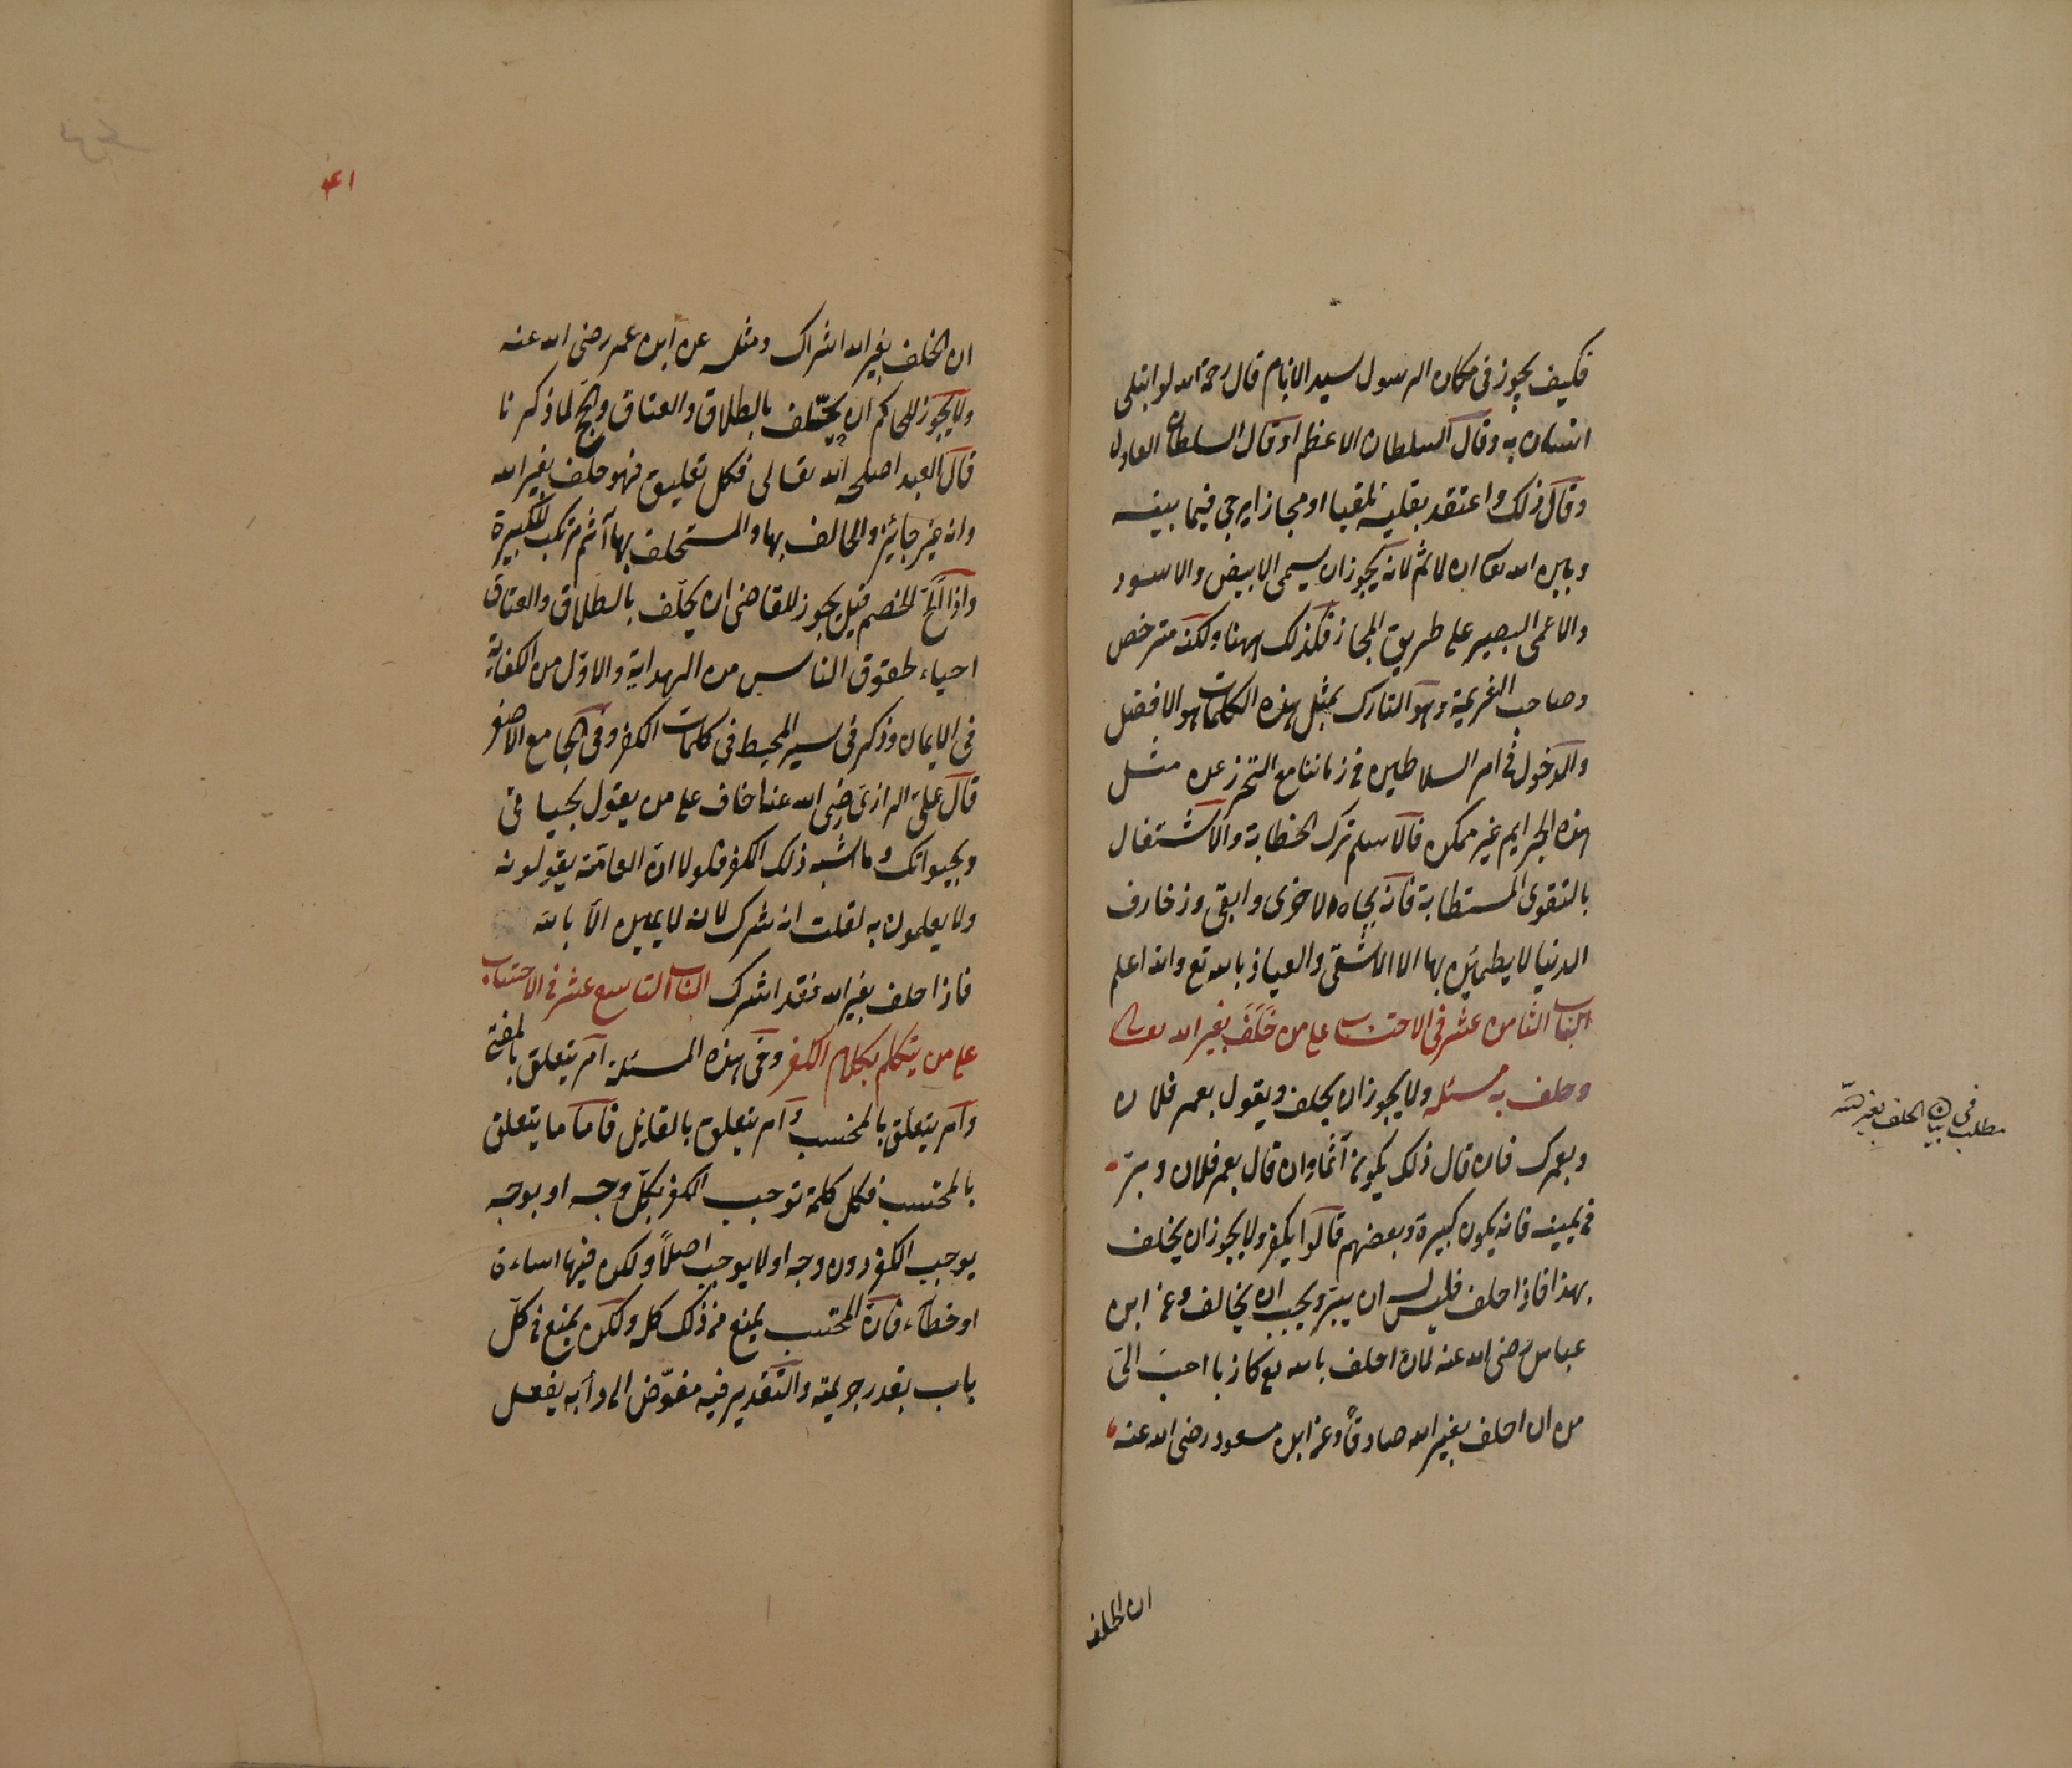 فكيف يجوز في مكان الرسول سيد الانام قال رحمه الله لو ابتلى
انسان به وقال السلطان الاعظم او قال السلطان العادل
وقال ذلك واعتقد بقلبه تلقبا او مجازا يرجى فيما بينه
وبين الله تعالى ان لا يأثم لانه يجوز ان يسمى الابيض والاسود
والاعمى البصير على طريق المجاز فكذلك ههنا ولكنه مترخص
وصاحب الغريمة وهو التارك بمثل هذه الكلمات هو الافضل
والدخول في امر السلاطين في زماننا مع التحرز عن مثل
هذه الجرايم غير ممكن فالاسلم ترك الخطابة والاشتغال
بالتقوى المستطابة فانه بجاه الاخرى وابقى وزخارف
الدنيا لا يطمئن بها الا الاشقى والعياذ بالله تع والله اعلم
الباب الثامن عشر في الاحتساب على من حَلَفَ بغير الله تعالى
وحلف به مسئله ولا يجوز ان يحلف ويقول بعمر فلان
وبعمرك فان قال ذلك يكون آثما وان قال بعمر فلان وبرّ
في يمينه فانه يكون كبيرة وبعضهم قالوا يكفر ولا يجوز ان يحلف
بهذا فاذا حلف فليس له ان يبرّ ويجب ان يخالف وعن ابن
عباس رضى الله عنه لان احلف بالله تع كاذبا احبّ الىّ
من ان احلف بغير الله صادقاً وعن ابن مسعود رضى الله عنه
ان الحلف
مطلب في بيان الحلف بغير الله
٤١
ان الحلف بغير الله اشراك ومثله عن ابن عمر رضى الله عنه
ولا يجوز للحاكم ان يحلّف بالطلاق والعتاق والحج لما ذكرنا
قال العبد اصلحه الله تعالى فكل تعليق فهو حلف بغير الله
وانه غير جائز والحالف بها والمستحلف بها آثم مرتكب للكبيرة
واذا الحّ الخصم قيل يجوز للقاضى ان يحلّف بالطلاق والعتاق
احياء لحقوق الناس من الهداية والاوّل من الكفاية
في الايمان وذكر في سير المحيط في كلمات الكفر وفى الجامع الاصغر
قال علىّ الرازى رضى الله عنه اخاف على من يقول بحياتى
وبحيواتك وما اشبه ذلك الكفر فلولا ان العامّة يقولونه
ولا يعلمون به لقلت انه شرك لانه لا يمين الّا بالله
فاذا حلف بغير الله فقد اشرك الباب التاسع عشر في الاحتساب
على من يتكلم بكلام الكفر وفى هذه المسئلة امر يتعلق بالمفتى
وامر يتعلق بالمحتسب وامر يتعلق بالقايل فاما ما يتعلق
بالمحتسب فكل كلمة توجب الكفر بكلّ وجه او بوجه
يوجب الكفر دون وجه او لا يوجب اصلاً ولكن فيها اساءة
او خطاء فانّ المحتسب يمنع من ذلك كله ولكن يمنع في كلّ
باب بقدر جريمته والتقدير فيه مفوّض الى دأبه يفعل